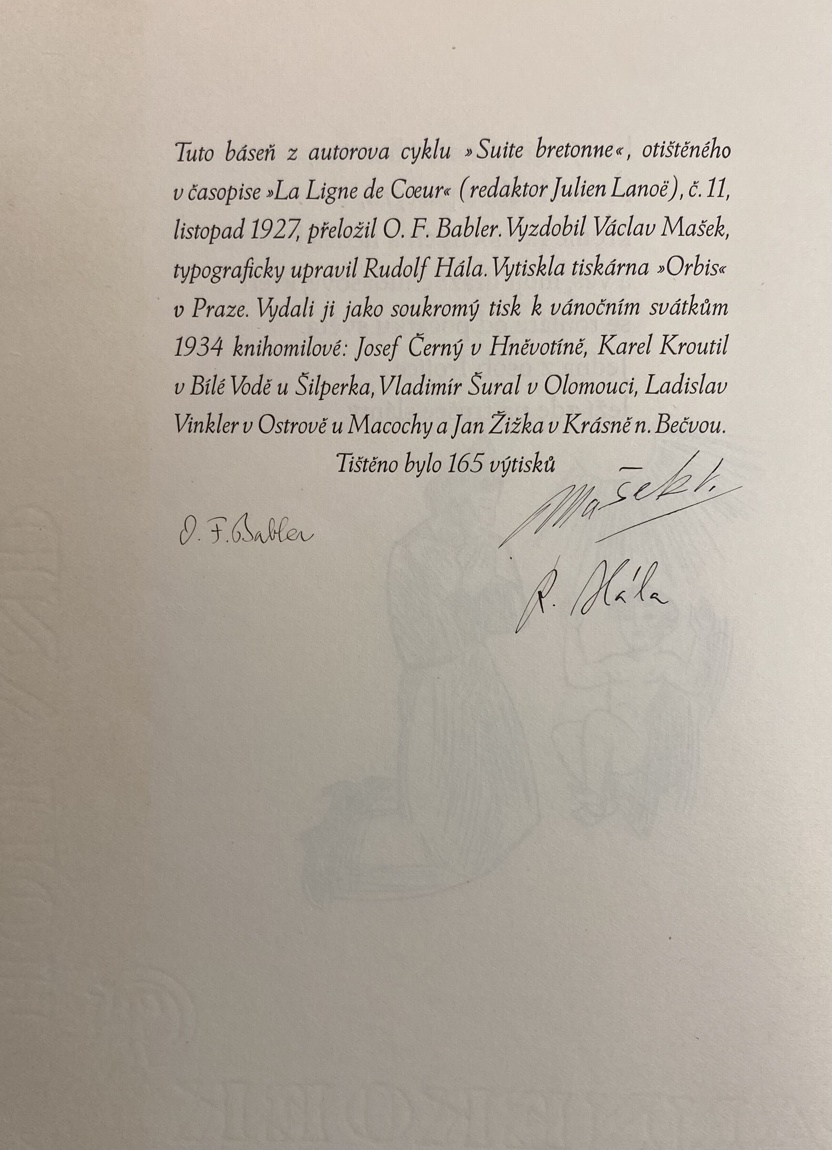 Tuto báseň z autorova cyklu »Suite bretonne«, otištěného
v časopise »La Ligne de Cœur« (redaktor Julien Lanoë), č. 11,
listopad 1927, přeložil O. F. Babler. Vyzdobil Václav Mašek,
typograficky upravil Rudolf Hála. Vytiskla tiskárna »Orbis«
v Praze. Vydali ji jako soukromý tisk k vánočním svátkům
1934 knihomilové: Josef Černý v Hněvotíně, Karel Kroutil
v Bílé Vodě u Šilperka, Vladimír Šural v Olomouci, Ladislav
Vinkler v Ostrově u Macochy a Jan Žižka v Krásně n. Bečvou.
Tištěno bylo 165 výtisků
Mašek V.
O. F. Babler
R. Hála